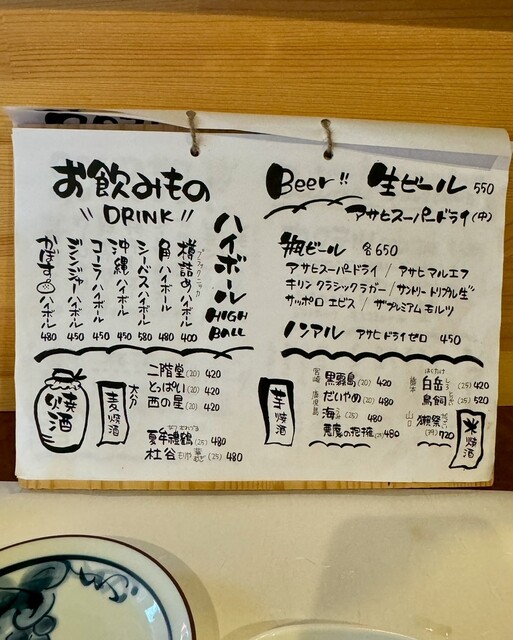 お飲みもの
"DRINK"
ハイボール
HIGH
BALL
ブラックニッカ
樽詰めハイボール 400
角ハイボール 480
シーバスハイボール 580
沖縄ハイボール 450
コーラハイボール 450
ジンジャハイボール 450
かぼすハイボール 480
焼酎
大分
麦焼酎
二階堂(20) 420
とっぱい(20) 420
西の星(20) 420
(25) 480
杜谷 (25) 480
Beer!! 生ビール 550
アサヒスーパードライ(中)
瓶ビール 各650
アサヒスーパードライ / アサヒマルエフ
キリンクラシックラガー / サントリートリプル生
サッポロエビス / ザプレミアムモルツ
ノンアル アサヒドライゼロ 450
芋焼酒
宮崎
鹿児島
黒霧島(20) 420
だいやめ(20) 480
海(25) 480
悪魔の抱擁(25) 480
米焼酒
はくたけ
白岳(25) 420
鳥飼(25) 520
山口
獺祭(39) 720